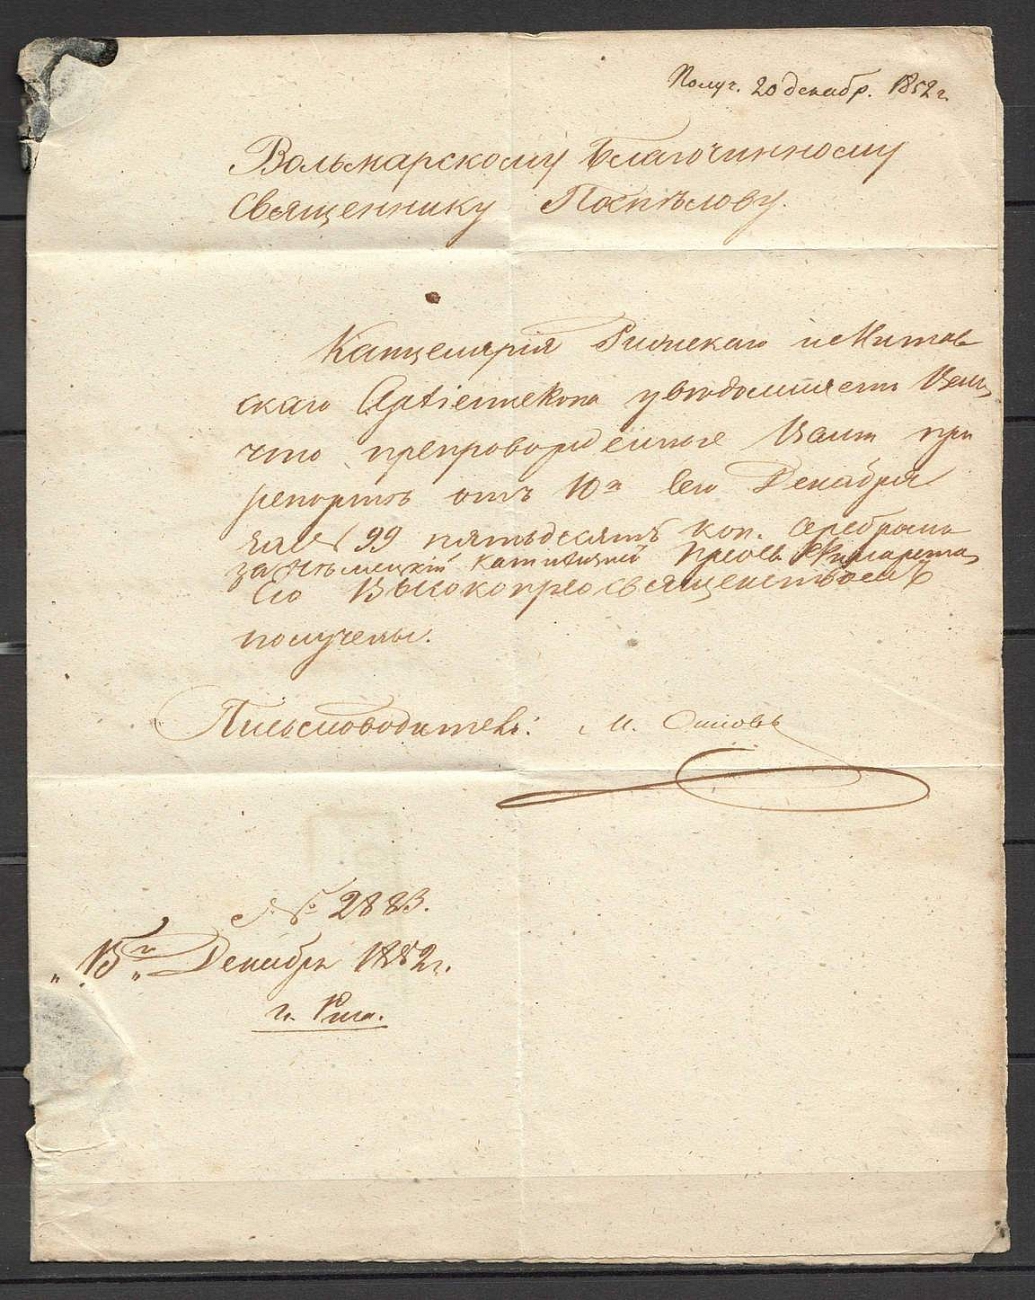 Получ. 20 декабр. 1852 г.
Вольмарскому Благочинному
Священнику Поспѣлову.
Канцелярія Рижскаго и Митав
скаго Архіепископа увѣдомляетъ Васъ,
что препровожденные Вами при
репортѣ отъ 10го сего Декабря
за № 99 пятьдесятъ коп. серебромъ
за Нѣмецкій Катихизисъ Преосв. Филарета,
Его Высокопреосвященствомъ
получены.
Письмоводитель: М.
№ 2883.
"15" Декабря 1852 г.
г. Рига.